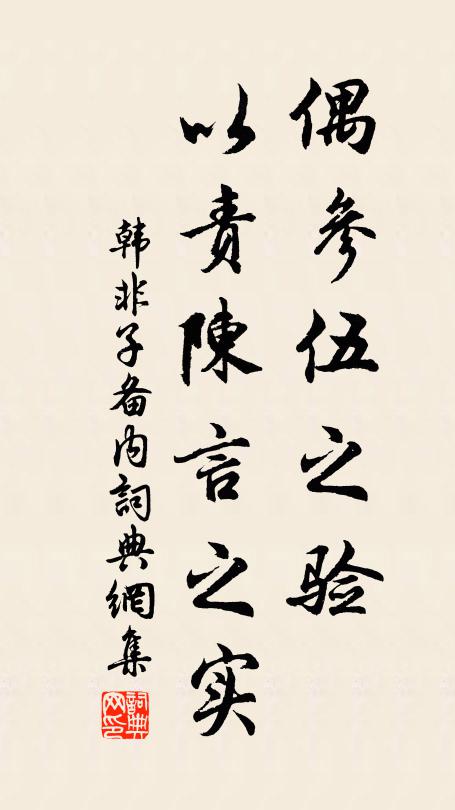 偶参伍之验
以责陳言之实
韩非子备内詞典網集
詞典网印